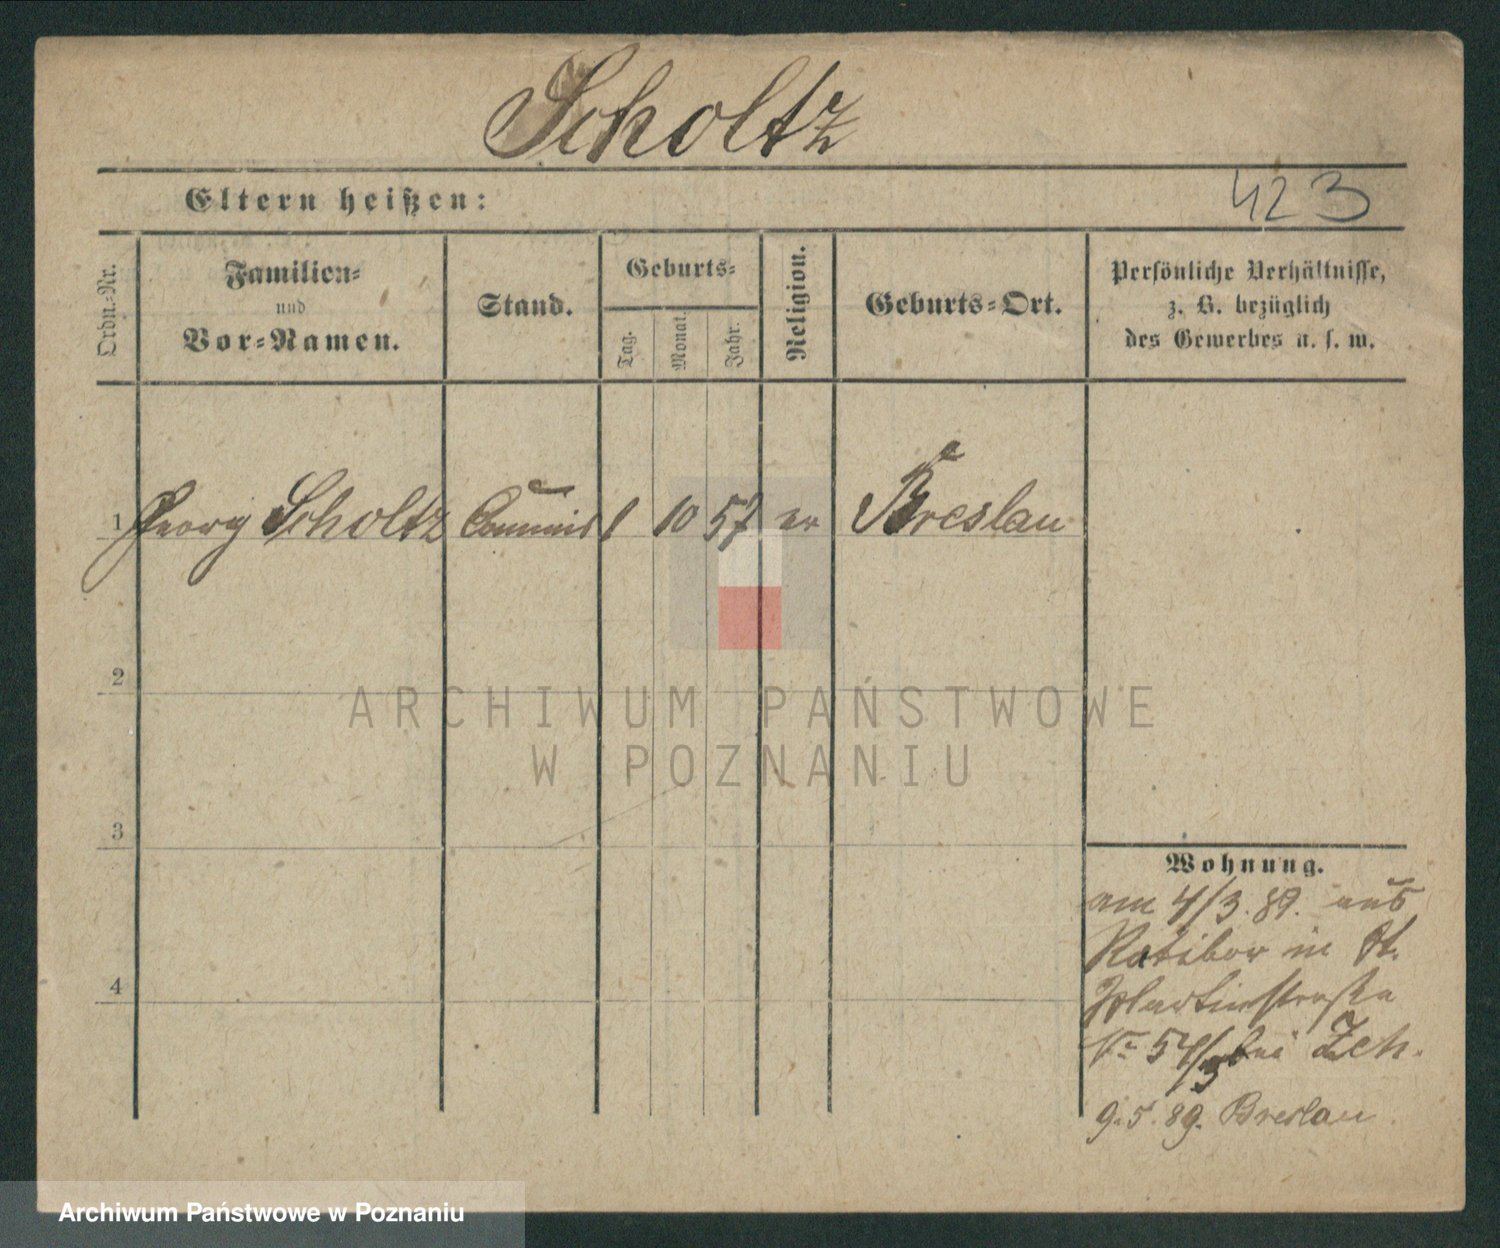 Scholtz
Eltern heißen:
423
Ordn.-Nr.
Familien-
und
Vor-Namen.
Stand.
Geburts-
Tag.
Monat.
Jahr.
Religion.
Geburts-Ort.
Persönliche Verhältnisse,
z. B. bezüglich
des Gewerbes u. s. w.
1 Georg Scholtz Commis 1 10 57 ev Breslau
2
ARCHIWUM PAŃSTWOWE
W POZNANIU
3
Wohnung.
am 4/3. 89. aus
Ratibor in St.
Martinstraße
54/3 bei Zeh.
9.5.89. Breslau
4
Archiwum Państwowe w Poznaniu